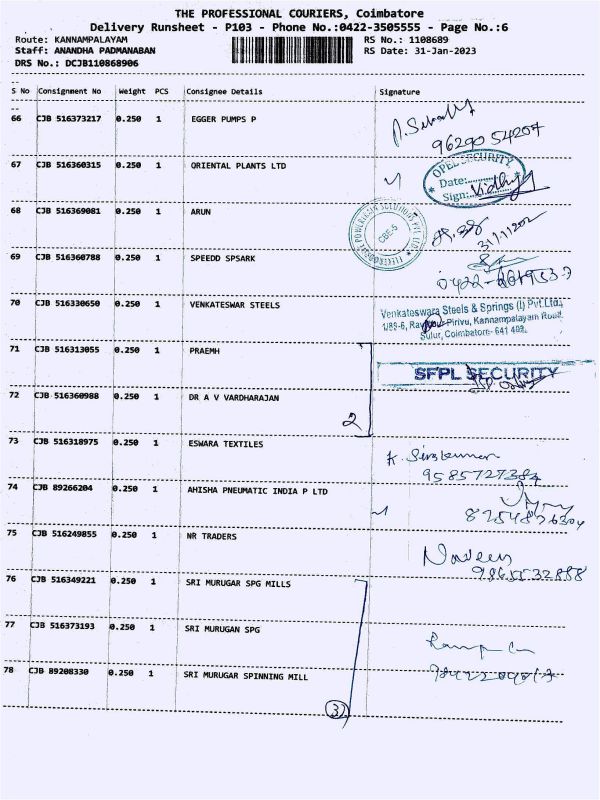 THE PROFESSIONAL COURIERS, Coimbatore
Delivery Runsheet - P103 - Phone No.:0422-3505555 - Page No.:6
Route: KANNAMPALAYAM RS No.: 1108689
Staff: ANANDHA PADMANABAN RS Date: 31-Jan-2023
DRS No.: DCJB110868906
S No Consignment No Weight PCS Consignee Details Signature
66 CJB 516373217 0.250 1 EGGER PUMPS P
96290 54207
67 CJB 516360315 0.250 1 ORIENTAL PLANTS LTD
OPEL SECURITY
Date:
Sign: Vidhya
68 CJB 516369081 0.250 1 ARUN
CBE-5
69 CJB 516360788 0.250 1 SPEEDD SPSARK
70 CJB 516330650 0.250 1 VENKATESWAR STEELS
Venkateswara Steels & Springs (I) Pvt.Ltd.,
1/89-6, Pirivu, Kannampalayam Road,
Sulur, Coimbatore- 641 402.
71 CJB 516313055 0.250 1 PRAEMH
SFPL SECURITY
72 CJB 516360988 0.250 1 DR A V VARDHARAJAN
2
73 CJB 516318975 0.250 1 ESWARA TEXTILES
K. Sivakumar
9585727384
74 CJB 89266204 0.250 1 AHISHA PNEUMATIC INDIA P LTD
75 CJB 516249855 0.250 1 NR TRADERS
Naveen
76 CJB 516349221 0.250 1 SRI MURUGAR SPG MILLS
77 CJB 516373193 0.250 1 SRI MURUGAN SPG
78 CJB 89208330 0.250 1 SRI MURUGAR SPINNING MILL
3